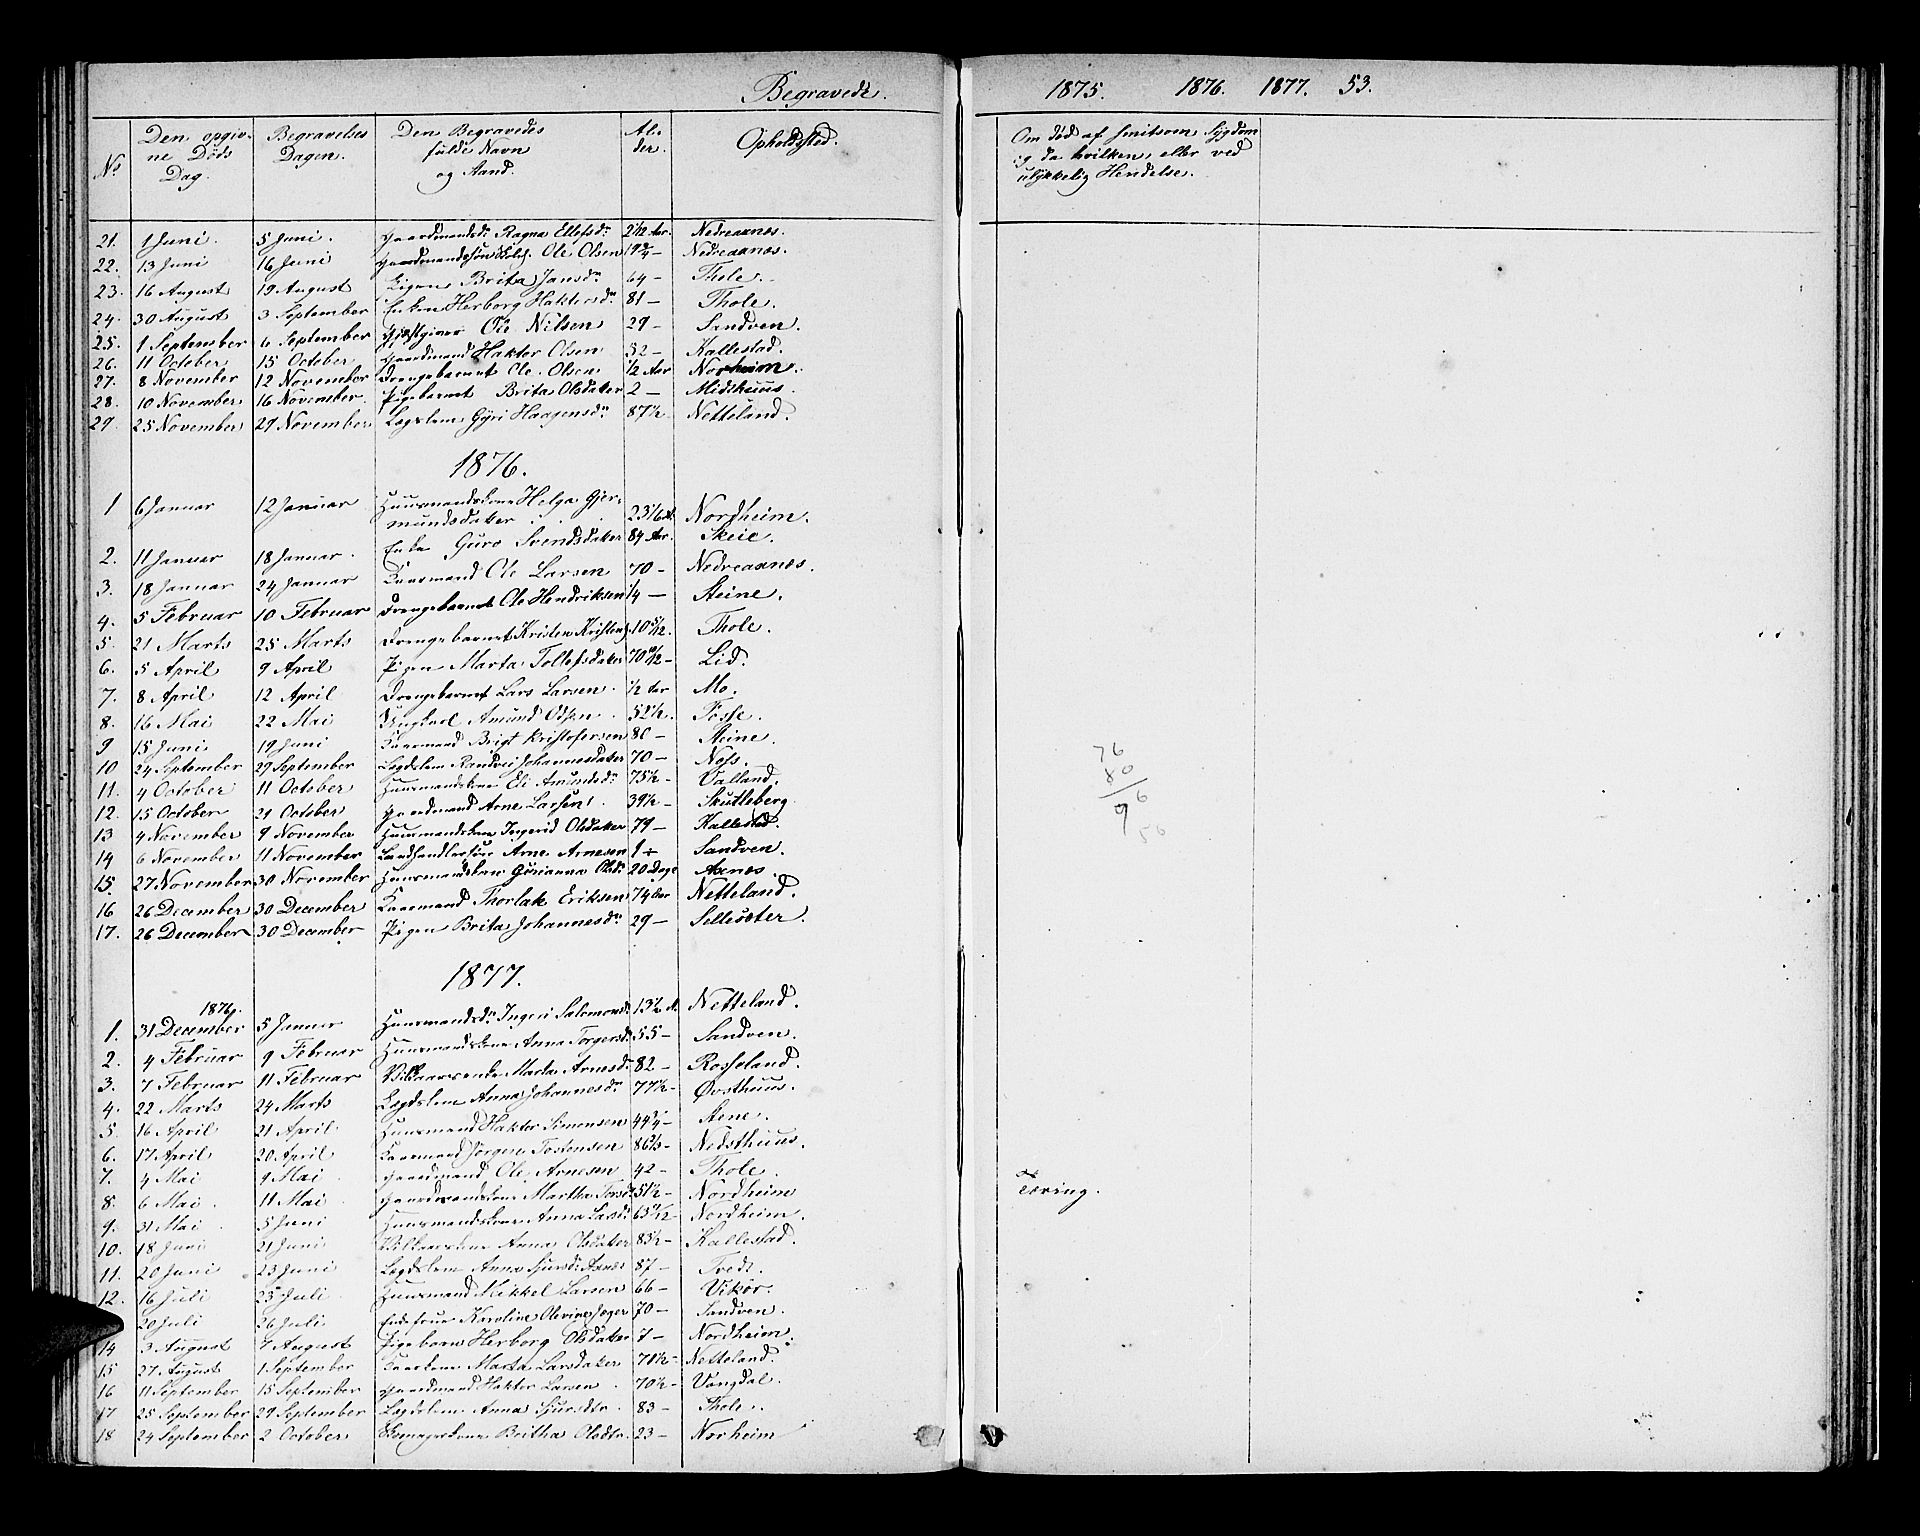 Begravede. 1875. 1876. 1877. 53.
No Den opgiv- Begravelses Den Begravedes Al- Opholdssted. Om død af smitsom Sygdom
ne Døds Dagen. fulde Navn der. og da hvilken, eller ved
Dag. og Stand. ulykkelig Hendelse.
21. 1 Juni. 5 Juni. Gaardmandsdr Ragna Ellefsdr 2 1/12 Aar. Nedreaxnes.
22. 13 Juni 16 Juni Ole Olsen 19 3/4 — Nedreaxnes.
23. 16 August 19 August Pigen Brita Jansdr 64 — Thole.
24. 30 August 3 September Enken Herborg Haktorsdr 81 — Thole.
25. 1 September 6 September Gjestgiver Ole Nilsen 29 — Sandven.
26. 11 October 15 October Gaardmand Haktor Olsen 52 — Kallestad.
27. 8 November 12 November Drengebarnet Ole Olsen 1/2 Aar Norheim.
28. 10 November 16 November Pigebarnet Brita Olsdater 2 — Midthuus.
29. 25 November 29 November Lægdslem Gyri Haagensdr 87 1/2 — Netteland.
1876.
1 6 Januar 12 Januar Huusmandskone Helga Gjer-
mundsdater 23 1/6 A. Nordheim.
2. 11 Januar 18 Januar. Enke Guro Svendsdater 84 Aar. Skeie.
3. 18 Januar 24 Januar Kaarmand Ole Larsen 70 — Nedreaxnes.
4. 5 Februar 10 Februar Drengebarnet Ole Hendriksen 1/4 — Steine.
5. 21 Marts 25 Marts Drengebarnet Kristen 10 5/12. Thole.
6. 5 April 9 April Pigen Marta Tollefsdater 70 10/12 — Lid.
7. 8 April 12 April Drengebarnet Lars Larsen. 1/2 Aar Mo.
8. 16 Mai 22 Mai Ungkarl Amund 52 1/2. Fosse.
9 15 Juni 19 Juni Kaarmand Brigt Kristofersen 80 — Steine.
10 24 September 29 September Lægdslem Randvei Johannesdater 70 — Ness.
11. 4 October 11 October Huusmandskone Eli Amundsdr 75 1/2 — Valland.
12. 15 October 21 October Gaardmand Arne Larsen. 39 1/2 — Skutleberg.
13 4 November 9 November Huusmandskone Ingerid Olsdater 79 — Kallestad.
14 6 November 11 November Landhandlersøn Arne Arnesen Sandven.
15. 27 November 30 November Gurianna Olsdr 20 Dage Axnes.
16 26 December 30 December Kaarmand Thorlak Eriksen 74 Aar Netteland.
17. 26 December 30 December Pigen Brita Johannesdr 29 — Selleseter.
1877.
1876.
1. 31 December 5 Januar Huusmandsdr Ingeri Salomonsdr 13 1/2 A. Netteland.
2. 4 Februar 9 Februar Huusmandskone Anna Torgersdr 55 — Sandven.
3. 7 Februar 11 Februar Vilkaarsenke Marta Arnesdr 82 — Rosseland.
4. 22 Marts 24 Marts Lægdslem Anna Johannesdr 77 1/2 — Øvsthuus.
5 16 April 21 April. Huusmand Haktor Simonsen 44 3/4 — Stene.
6. 17 April 20 April Kaarmand Jørgen Tostensen 86 2/3 — Nedsthuus.
7. 4 Mai 9 Mai Gaardmand Ole Arnesen 42 — Thole.
8. 6 Mai. 11 Mai Gaardmandskone Martha Torsdr 51 1/2 — Nordheim Tæring.
9. 31 Mai 5 Juni Huusmandskone Anna Larsdr 63 Nordheim.
10. 18 Juni 21 Juni Vilkaarskone Anna Olsdater 83 1/2 — Kallestad.
11. 20 Juni 23 Juni Lægdslem Anna Sjursdr Axnes 87 — Tvedt.
12. 16 Juli 23 Juli Huusmand Mikkel Larsen 66 — Vikør.
20 Juli 26 Juli Enkefrue Karoline Olevine Jæger 70 — Sandven.
14 3 August 7 August Pigebarn Herborg Olsdater 7 — Nordheim.
15 27 August 1 September Kaarkone Marta Larsdater 70 1/2 — Netteland.
16 11 September 15 September Gaardmand Haktor Larsen 70 1/2 — Vangdal.
17 25 September 29 September Lægdslem Anna Sjursdtr. 83 — Thole.
18 24 September 2 October Britha Olsdtr. 23 — Norheim
76
80
96
50